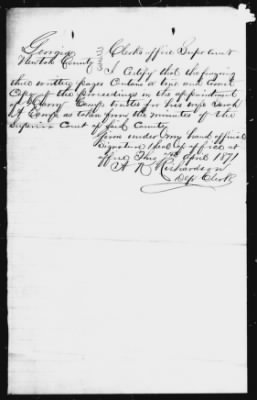 Georgia Clerks office Supr Court
Newton County I Certify that the foregoing
three written pages Contain a true and Correct
Copy of the proceedings in the appointment
of Henry Camp trustee for his wife Sarah
A Camp as taken from the minutes of the
Superior Court of said County
Given under my hand official
signature & seal of office at
office This 24th April 1871
A R Richardson
Dep Clerk